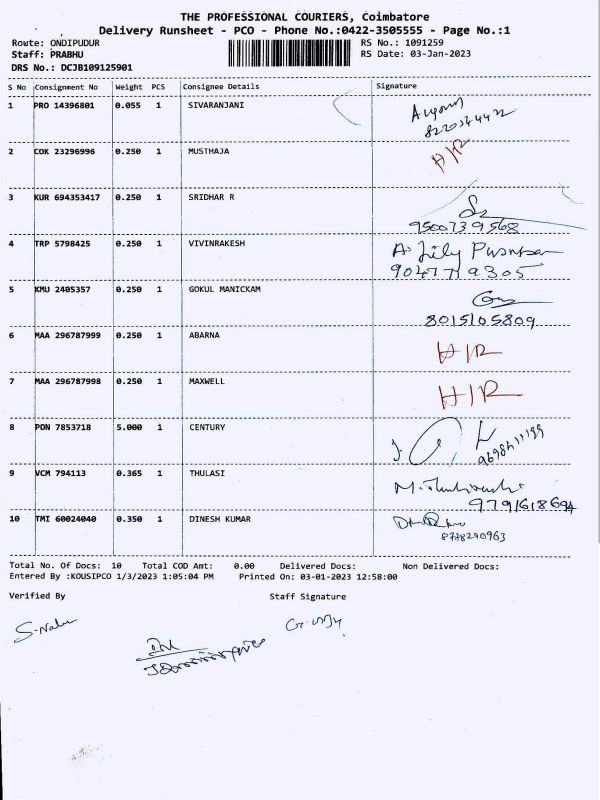 THE PROFESSIONAL COURIERS, Coimbatore
Delivery Runsheet - PCO - Phone No.:0422-3505555 - Page No.:1
Route: ONDIPUDUR RS No.: 1091259
Staff: PRABHU RS Date: 03-Jan-2023
DRS No.: DCJB109125901
S No Consignment No Weight PCS Consignee Details Signature
1 PRO 14396801 0.055 1 SIVARANJANI
2 COK 23296996 0.250 1 MUSTHAJA H/R
3 KUR 694353417 0.250 1 SRIDHAR R
9500739568
4 TRP 5798425 0.250 1 VIVINRAKESH A. Lily
9047719305
5 KMU 2405357 0.250 1 GOKUL MANICKAM
8015105809
6 MAA 296787999 0.250 1 ABARNA H/R
7 MAA 296787998 0.250 1 MAXWELL H/R
8 PON 7853718 5.000 1 CENTURY
9 VCM 794113 0.365 1 THULASI
9791618694
10 TMI 60024040 0.350 1 DINESH KUMAR
8778290963
Total No. Of Docs: 10 Total COD Amt: 0.00 Delivered Docs: Non Delivered Docs:
Entered By :KOUSIPCO 1/3/2023 1:05:04 PM Printed On: 03-01-2023 12:58:00
Verified By Staff Signature